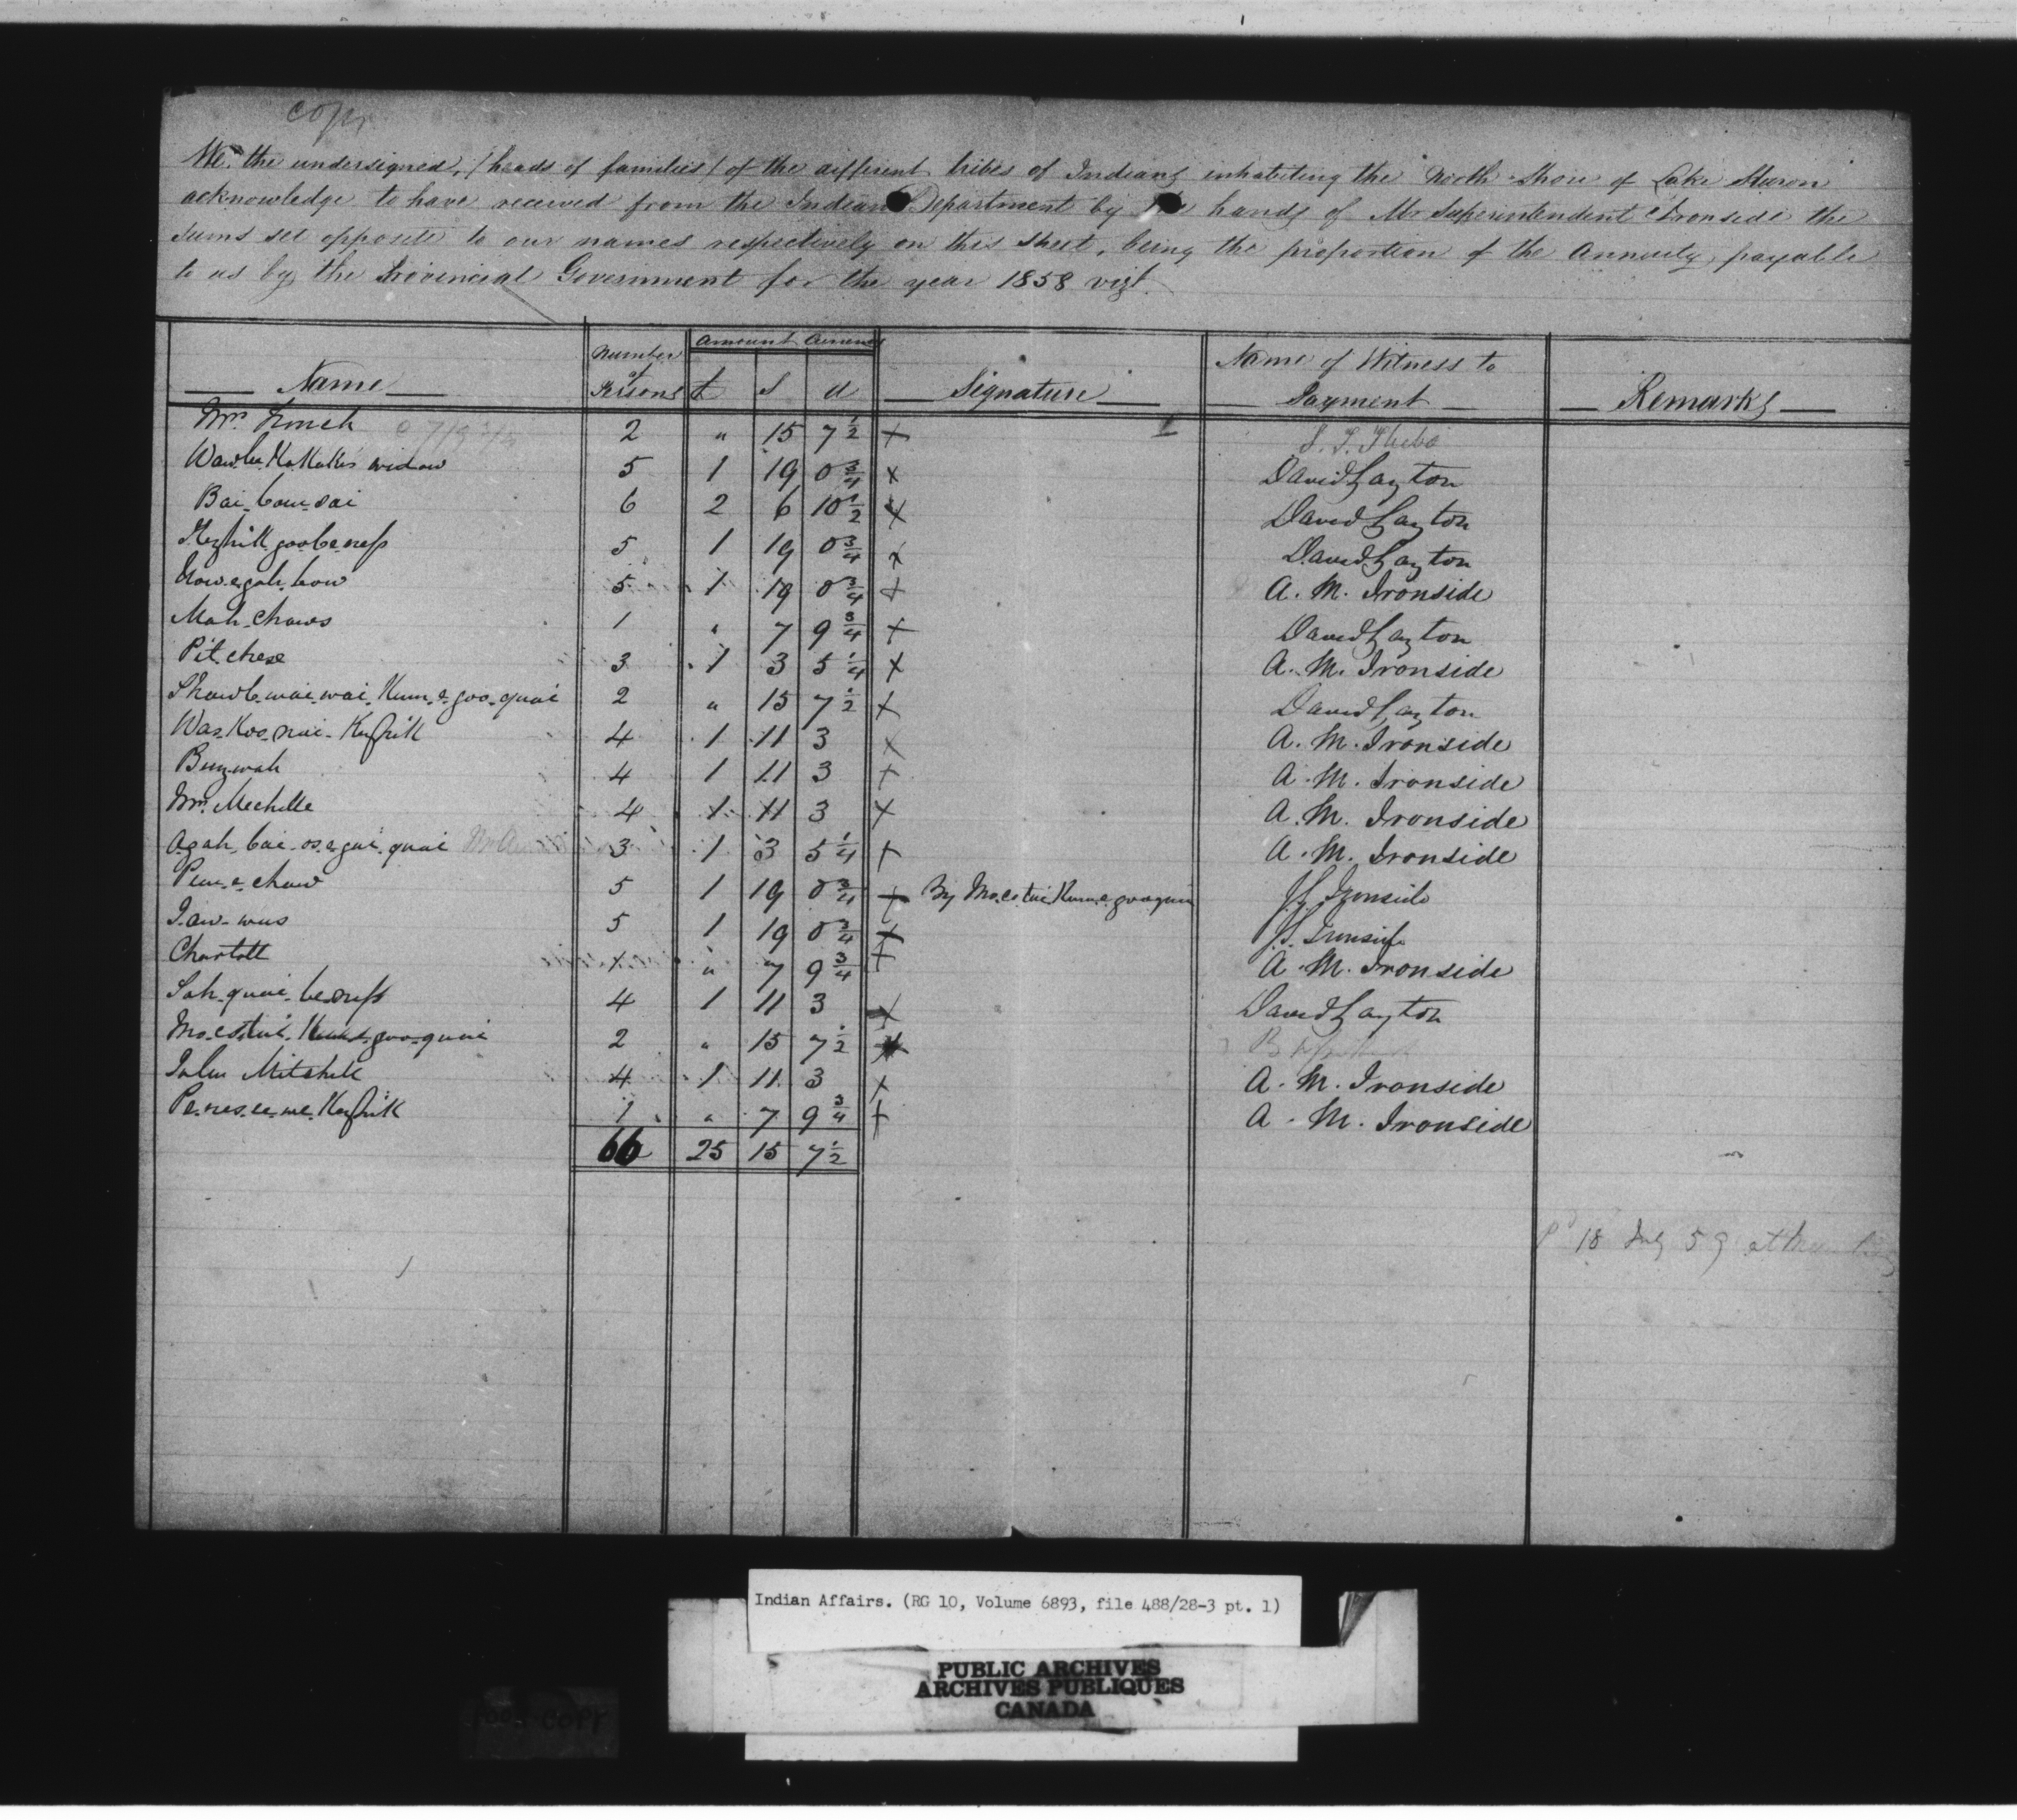 Copy
We the undersigned, (heads of families) of the different tribes of Indians inhabiting the North Shore of Lake Huron
acknowledge to have received from the Indian Department by hands of Mr Superintendent Ironside the
sums set opposite to our names respectively on this sheet, being the proportion of the Annuity payable
to us by the Provincial Government for the year 1858 vizt.
Name Number of Persons Amount Currency £ S d Signature Name of Witness to Payment Remarks
Mrs. 2 " 15 7 1/2 x
widow 5 1 19 0 3/4 x David Layton
Bai-bom-sai 6 2 6 10 1/2 x David Layton
5 1 19 0 3/4 x David Layton
Now-e-gah-bow 5 1 19 0 3/4 x A. M. Ironside
Mah-chaws 1 " 7 9 3/4 x David Layton
Pit-chese 3 1 3 5 1/4 x A. M. Ironside
Shawb-wai-wai-Kum-e-goo-quai 2 " 15 7 1/2 x David Layton
Was-Koo-nai-Keshik 4 1 11 3 x A. M. Ironside
Buzwah 4 1 11 3 x A. M. Ironside
Mechelle 4 1 11 3 x A. M. Ironside
Agah-bai-os-e-gai-quai 3 1 3 5 1/4 x A. M. Ironside
Pem-e-chaw 5 1 19 0 3/4 x By Mo-es-tai-Kum-e-goo-quai Ironside
Jaw-wus 5 1 19 0 3/4 x Ironside
Charlott 1 " 7 9 3/4 x A. M. Ironside
Sah-quai-be-ness 4 1 11 3 x David Layton
Mo-es-tai-Kum-e-goo-quai 2 " 15 7 1/2 x
John Mitchell 4 1 11 3 x A. M. Ironside
Pe-nes-se-we-Keshik 1 " 7 9 3/4 x A. M. Ironside
66 25 15 7 1/2
18 July 59 at
Indian Affairs. (RG 10, Volume 6893, file 488/28-3 pt. 1)
PUBLIC ARCHIVES
ARCHIVES PUBLIQUES
CANADA
POOR COPY